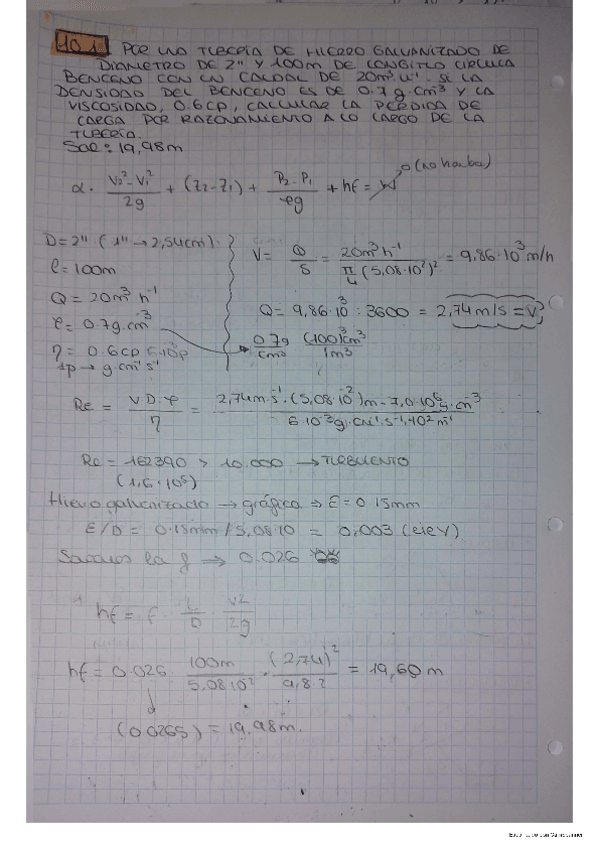 10.1 POR UNA TUBERÍA DE HIERRO GALVANIZADO DE
DIÁMETRO DE 2" Y 100m DE LONGITUD CIRCULA
BENCENO CON UN CAUDAL DE 20m³h⁻¹. SI LA
DENSIDAD DEL BENCENO ES DE 0.7 g·cm⁻³ Y LA
VISCOSIDAD, 0.6CP, CALCULAR LA PÉRDIDA DE
CARGA POR ROZAMIENTO A LO LARGO DE LA
TUBERÍA.
Sol: 19,98m
α · (V₂²-V₁²)/2g + (Z₂-Z₁) + (P₂-P₁)/ρg + hf = W → 0 (no bomba)
D = 2" (1" → 2,54cm)
l = 100m
Q = 20m³h⁻¹
ρ = 0.7g·cm⁻³
η = 0.6cp
1p → g·cm⁻¹s⁻¹
V = Q/S = 20m³h⁻¹ / π/4 (5,08·10⁻²)² = 9,86·10³ m/h
Q = 9,86·10³ : 3600 = 2,74 m/s = V
0.7g/cm³ (100)³cm³/1m³
Re = V·D·ρ/η = 2,74m·s⁻¹·(5,08·10⁻²)m · 7,0·10⁵g·cm⁻³ / 6·10⁻³g·cm⁻¹·s⁻¹·10²m⁻¹
Re = 162390 > 10.000 → TURBULENTO
(1,6·10⁵)
Hierro galvanizado → gráfica ⇒ E = 0.15mm
E/D = 0.15mm / 5,08·10 = 0,003 (elev)
Sacamos la f → 0.026
hf = f · L/D · V2/2g
hf = 0.026 · 100m/5,08·10² · (2,74)²/9,8·2 = 19,60 m
(0.0265) = 19,98m.